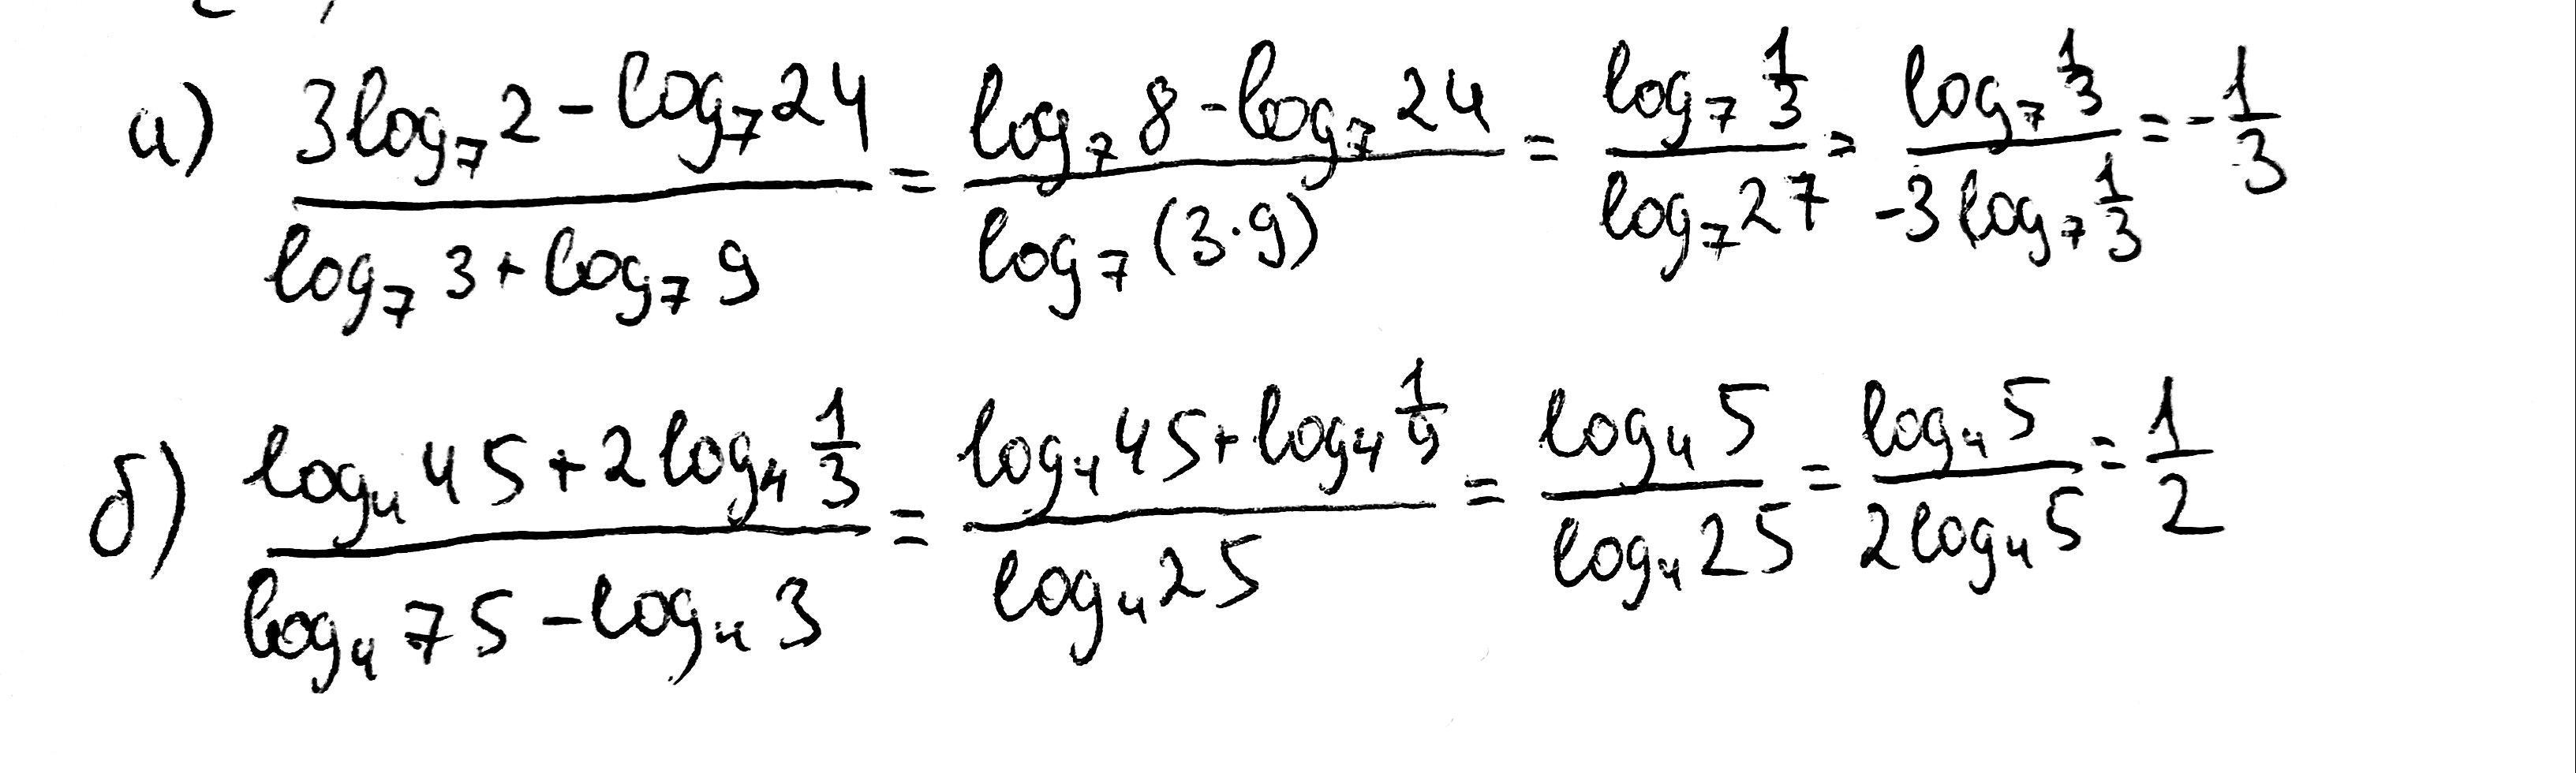 а) (3log₇2 - log₇24)/(log₇3 + log₇9) = (log₇8 - log₇24)/(log₇(3·9)) = (log₇ 1/3)/(log₇27) = (log₇ 1/3)/(-3log₇ 1/3) = -1/3
б) (log₄45 + 2log₄ 1/3)/(log₄75 - log₄3) = (log₄45 + log₄ 1/9)/(log₄25) = (log₄5)/(log₄25) = (log₄5)/(2log₄5) = 1/2